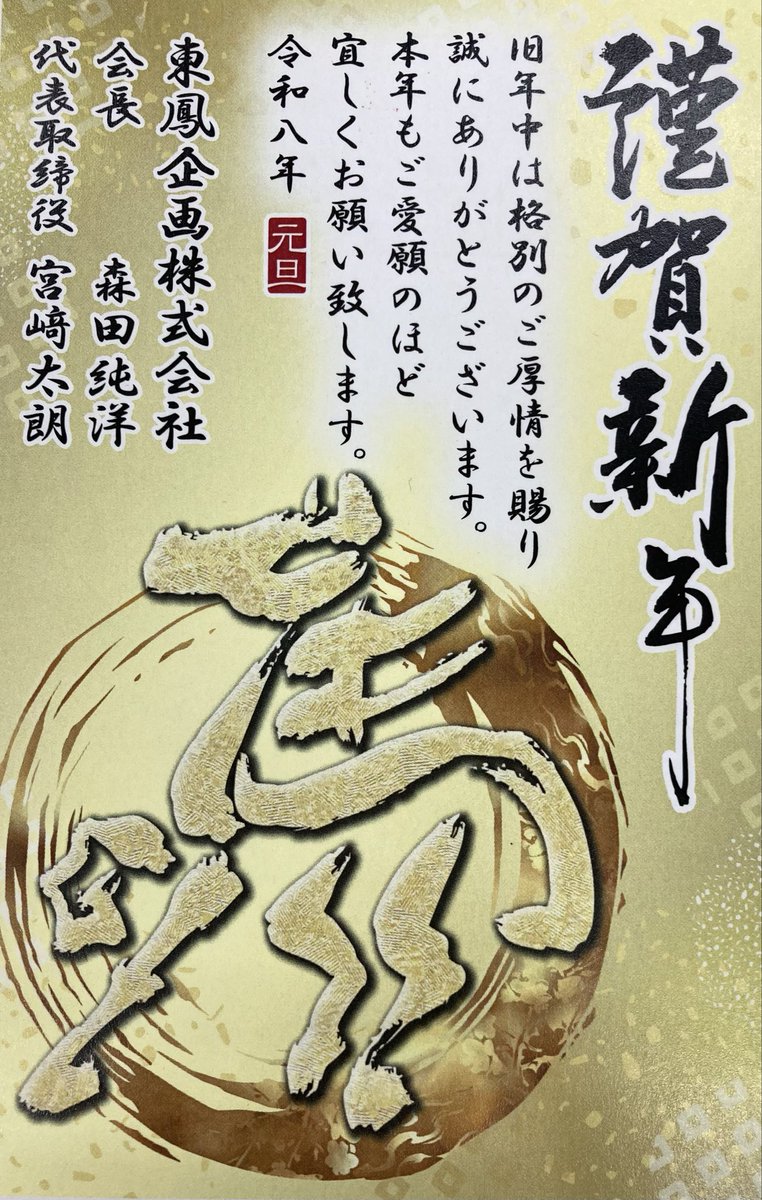 謹賀新年
旧年中は格別のご厚情を賜り
誠にありがとうございます。
本年もご愛願のほど
宜しくお願い致します。
令和八年 元旦
東鳳企画株式会社
会長 森田純洋
代表取締役 宮﨑太朗
馬